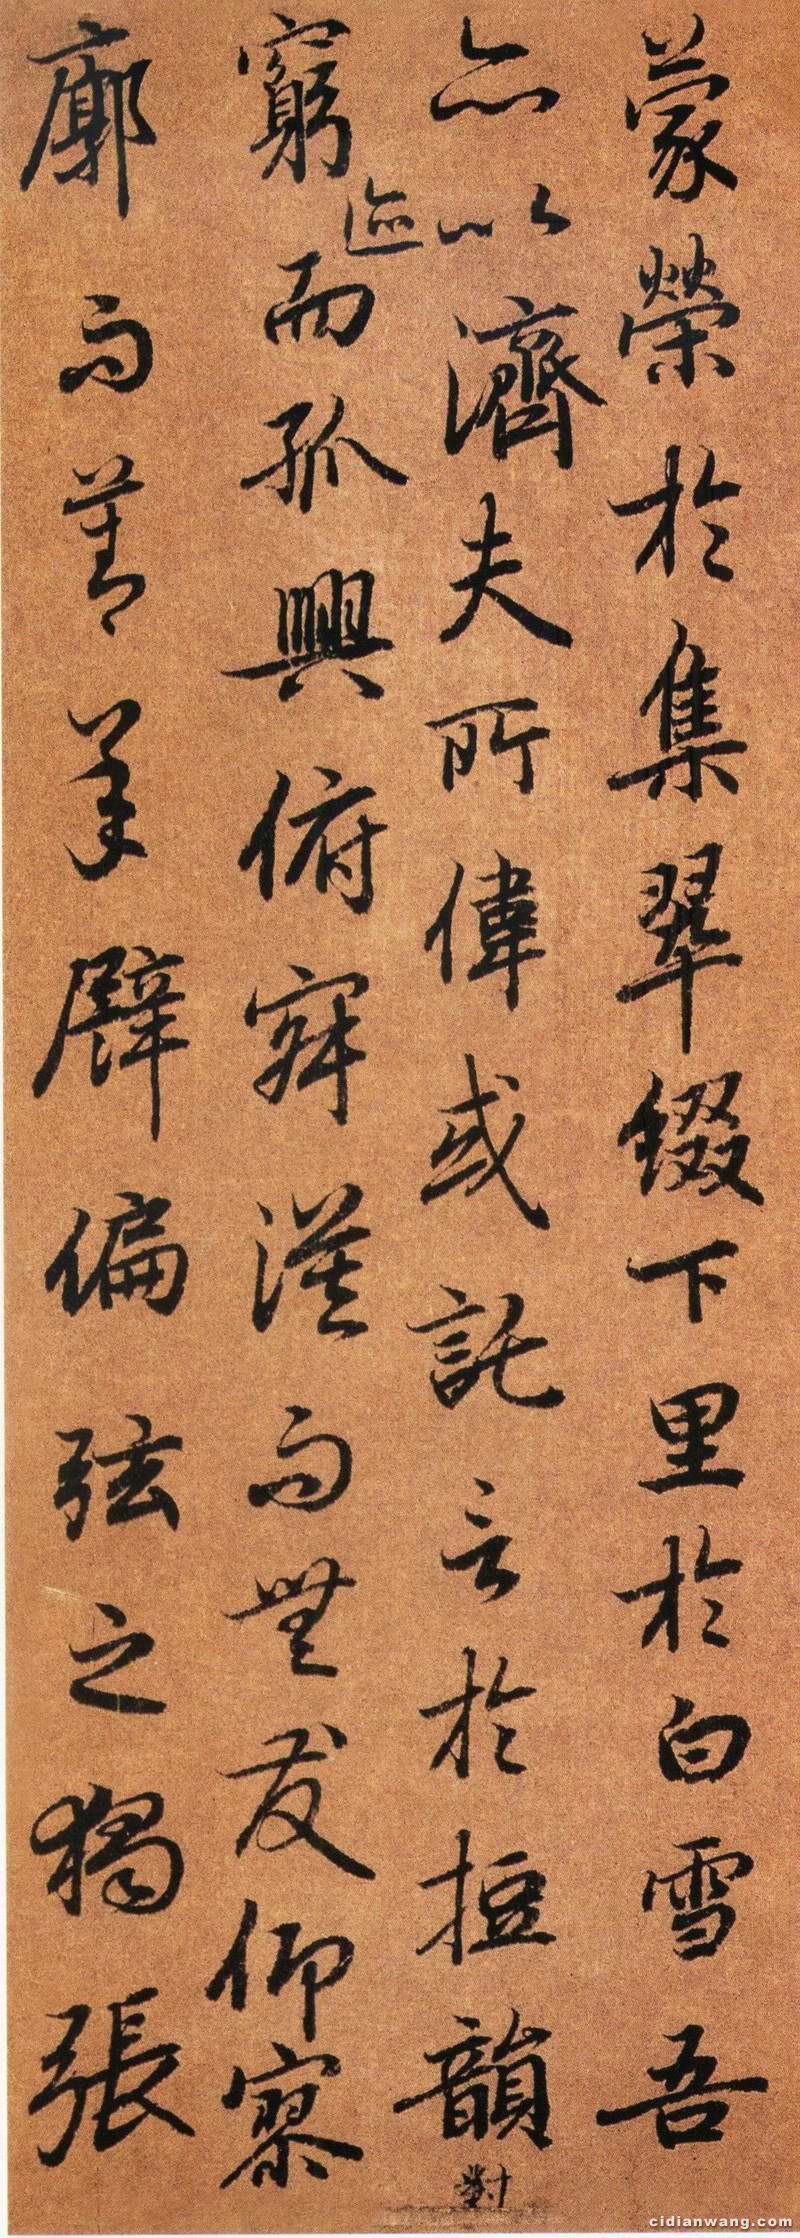 蒙榮於集翠綴下里於白雪吾
亦以濟夫所偉或託言於短韻對
窮迹而孤興俯寂漠而無友仰寥
廓而莫承譬偏弦之獨張
cidianwang.com